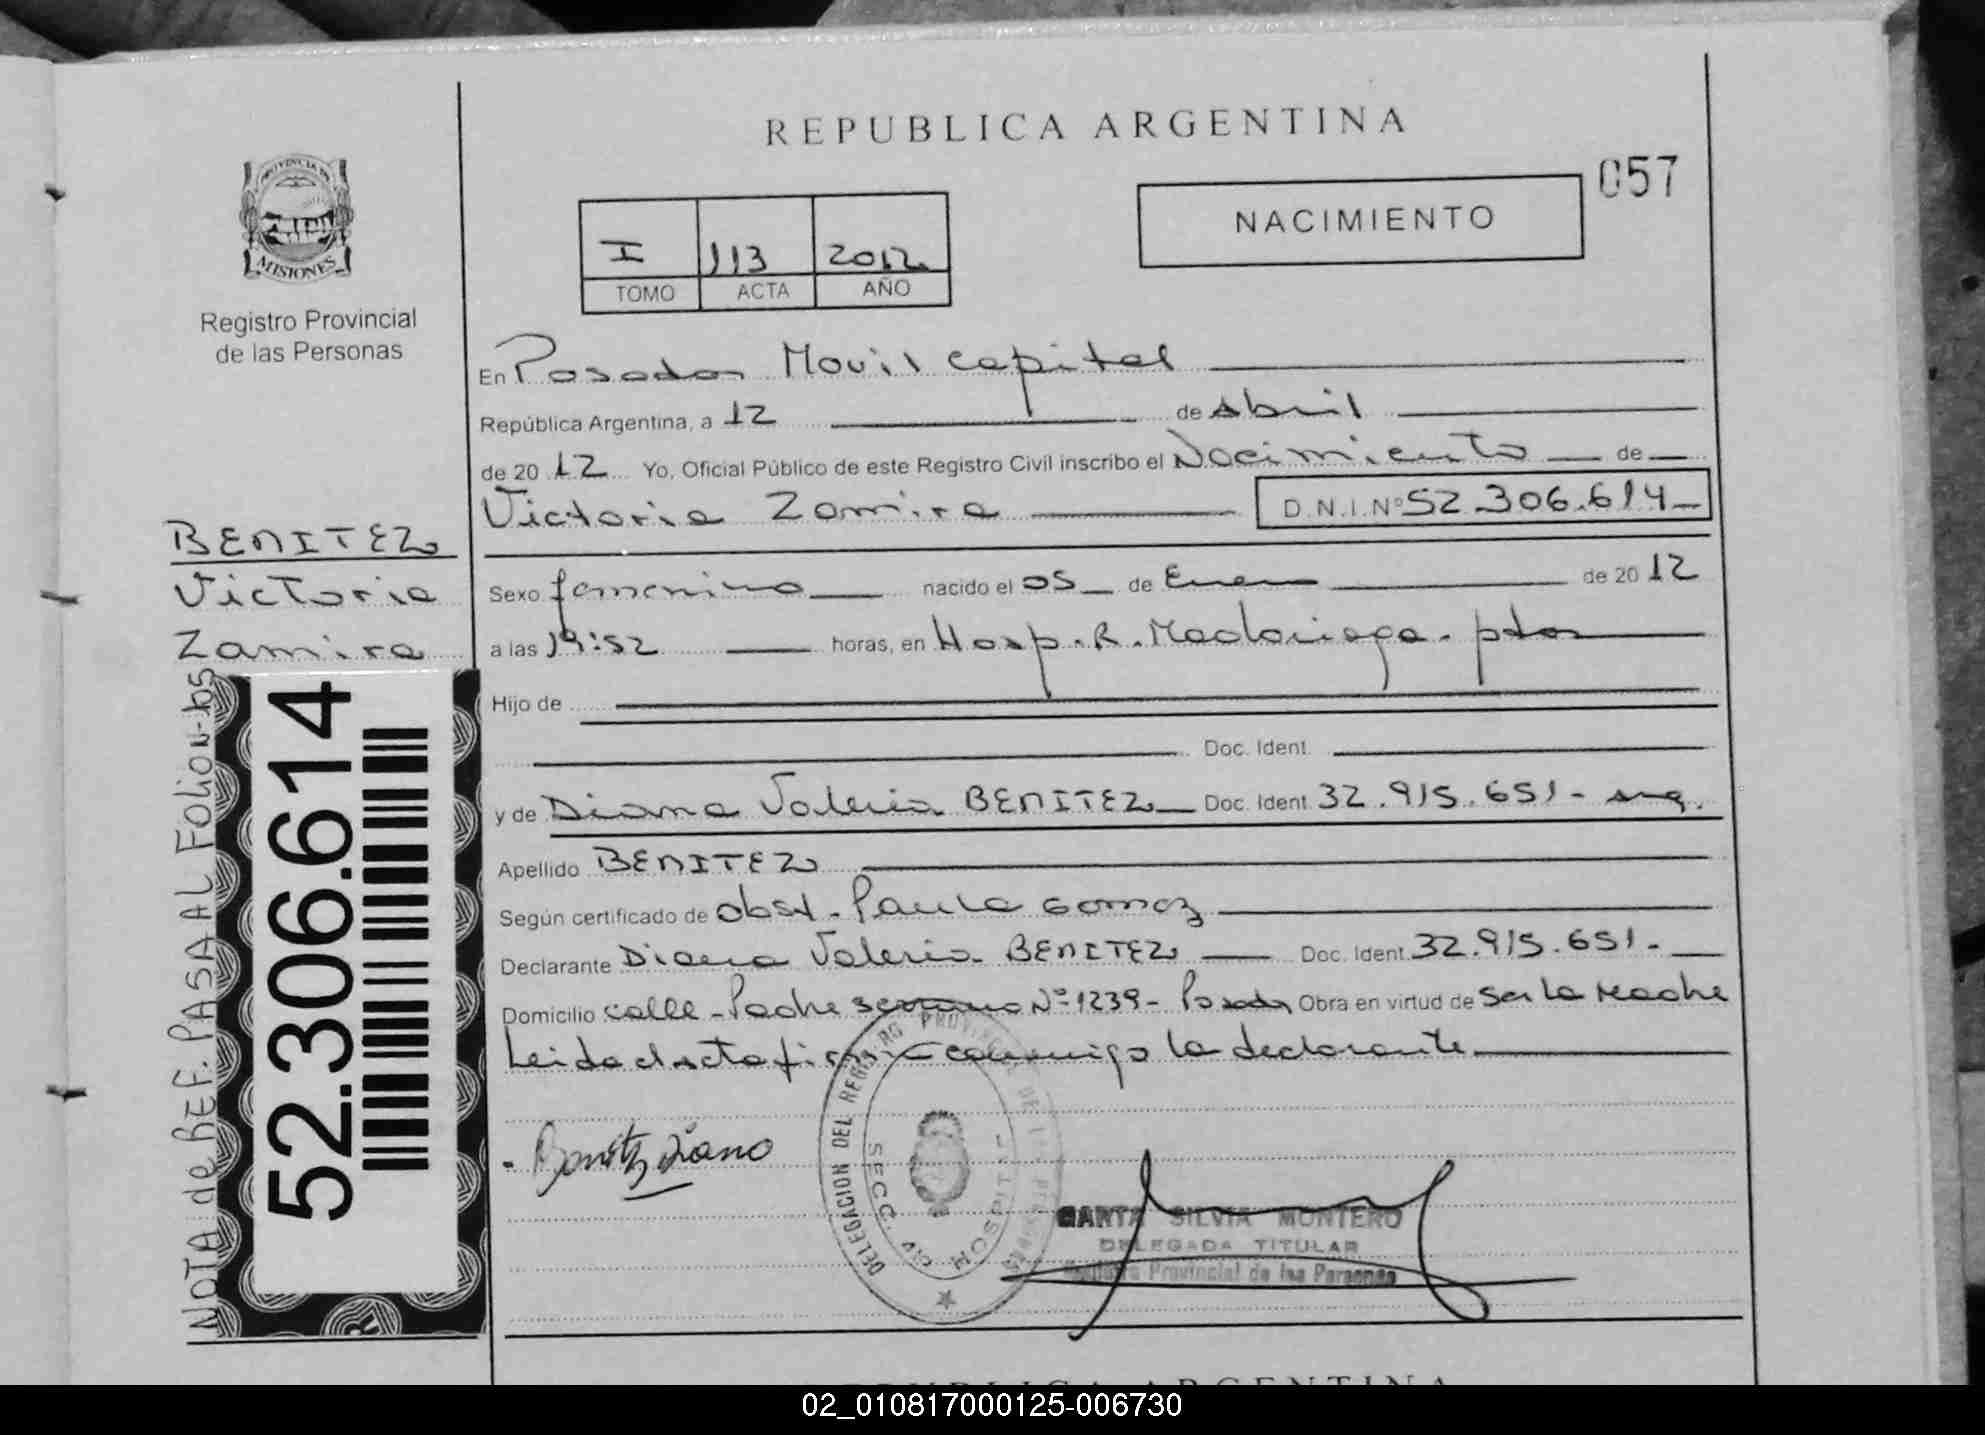 REPUBLICA ARGENTINA
057
PROVINCIA DE
MISIONES
Registro Provincial
de las Personas
I 113 2012
TOMO ACTA AÑO
NACIMIENTO
En Posadas Movil Capital
República Argentina, a 12 de Abril
de 20 12 Yo, Oficial Público de este Registro Civil inscribo el Nacimiento de
Victoria Zamira D.N.I. Nº 52.306.614
BENITEZ
Victoria
Zamira
Sexo femenino nacido el 05 de Enero de 20 12
a las 19:52 horas, en Hosp. R. Madariaga - pdas
Hijo de
Doc. Ident.
y de Diana Valeria BENITEZ Doc. Ident. 32.915.651 - arg.
Apellido BENITEZ
Según certificado de obst. Paula Gomez
Declarante Diana Valeria BENITEZ Doc. Ident. 32.915.651.
Domicilio calle - Padre Serrano Nº 1239 - Posadas Obra en virtud de ser la Madre
Leida el acta firma conmigo la declarante
NOTA de REF. PASA AL Folio
52.306.614
Benitez Diana
DELEGACION DEL REGISTRO PROVINCIAL DE LAS PERSONAS
SECC. HOSPITAL
SILVIA MONTERO
DELEGADA TITULAR
Registro Provincial de las Personas
REPUBLICA ARGENTINA
02_010817000125-006730